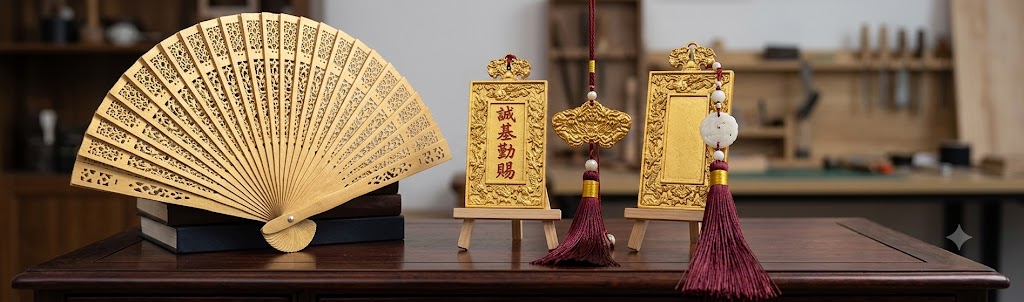 誠
基
勤
賜